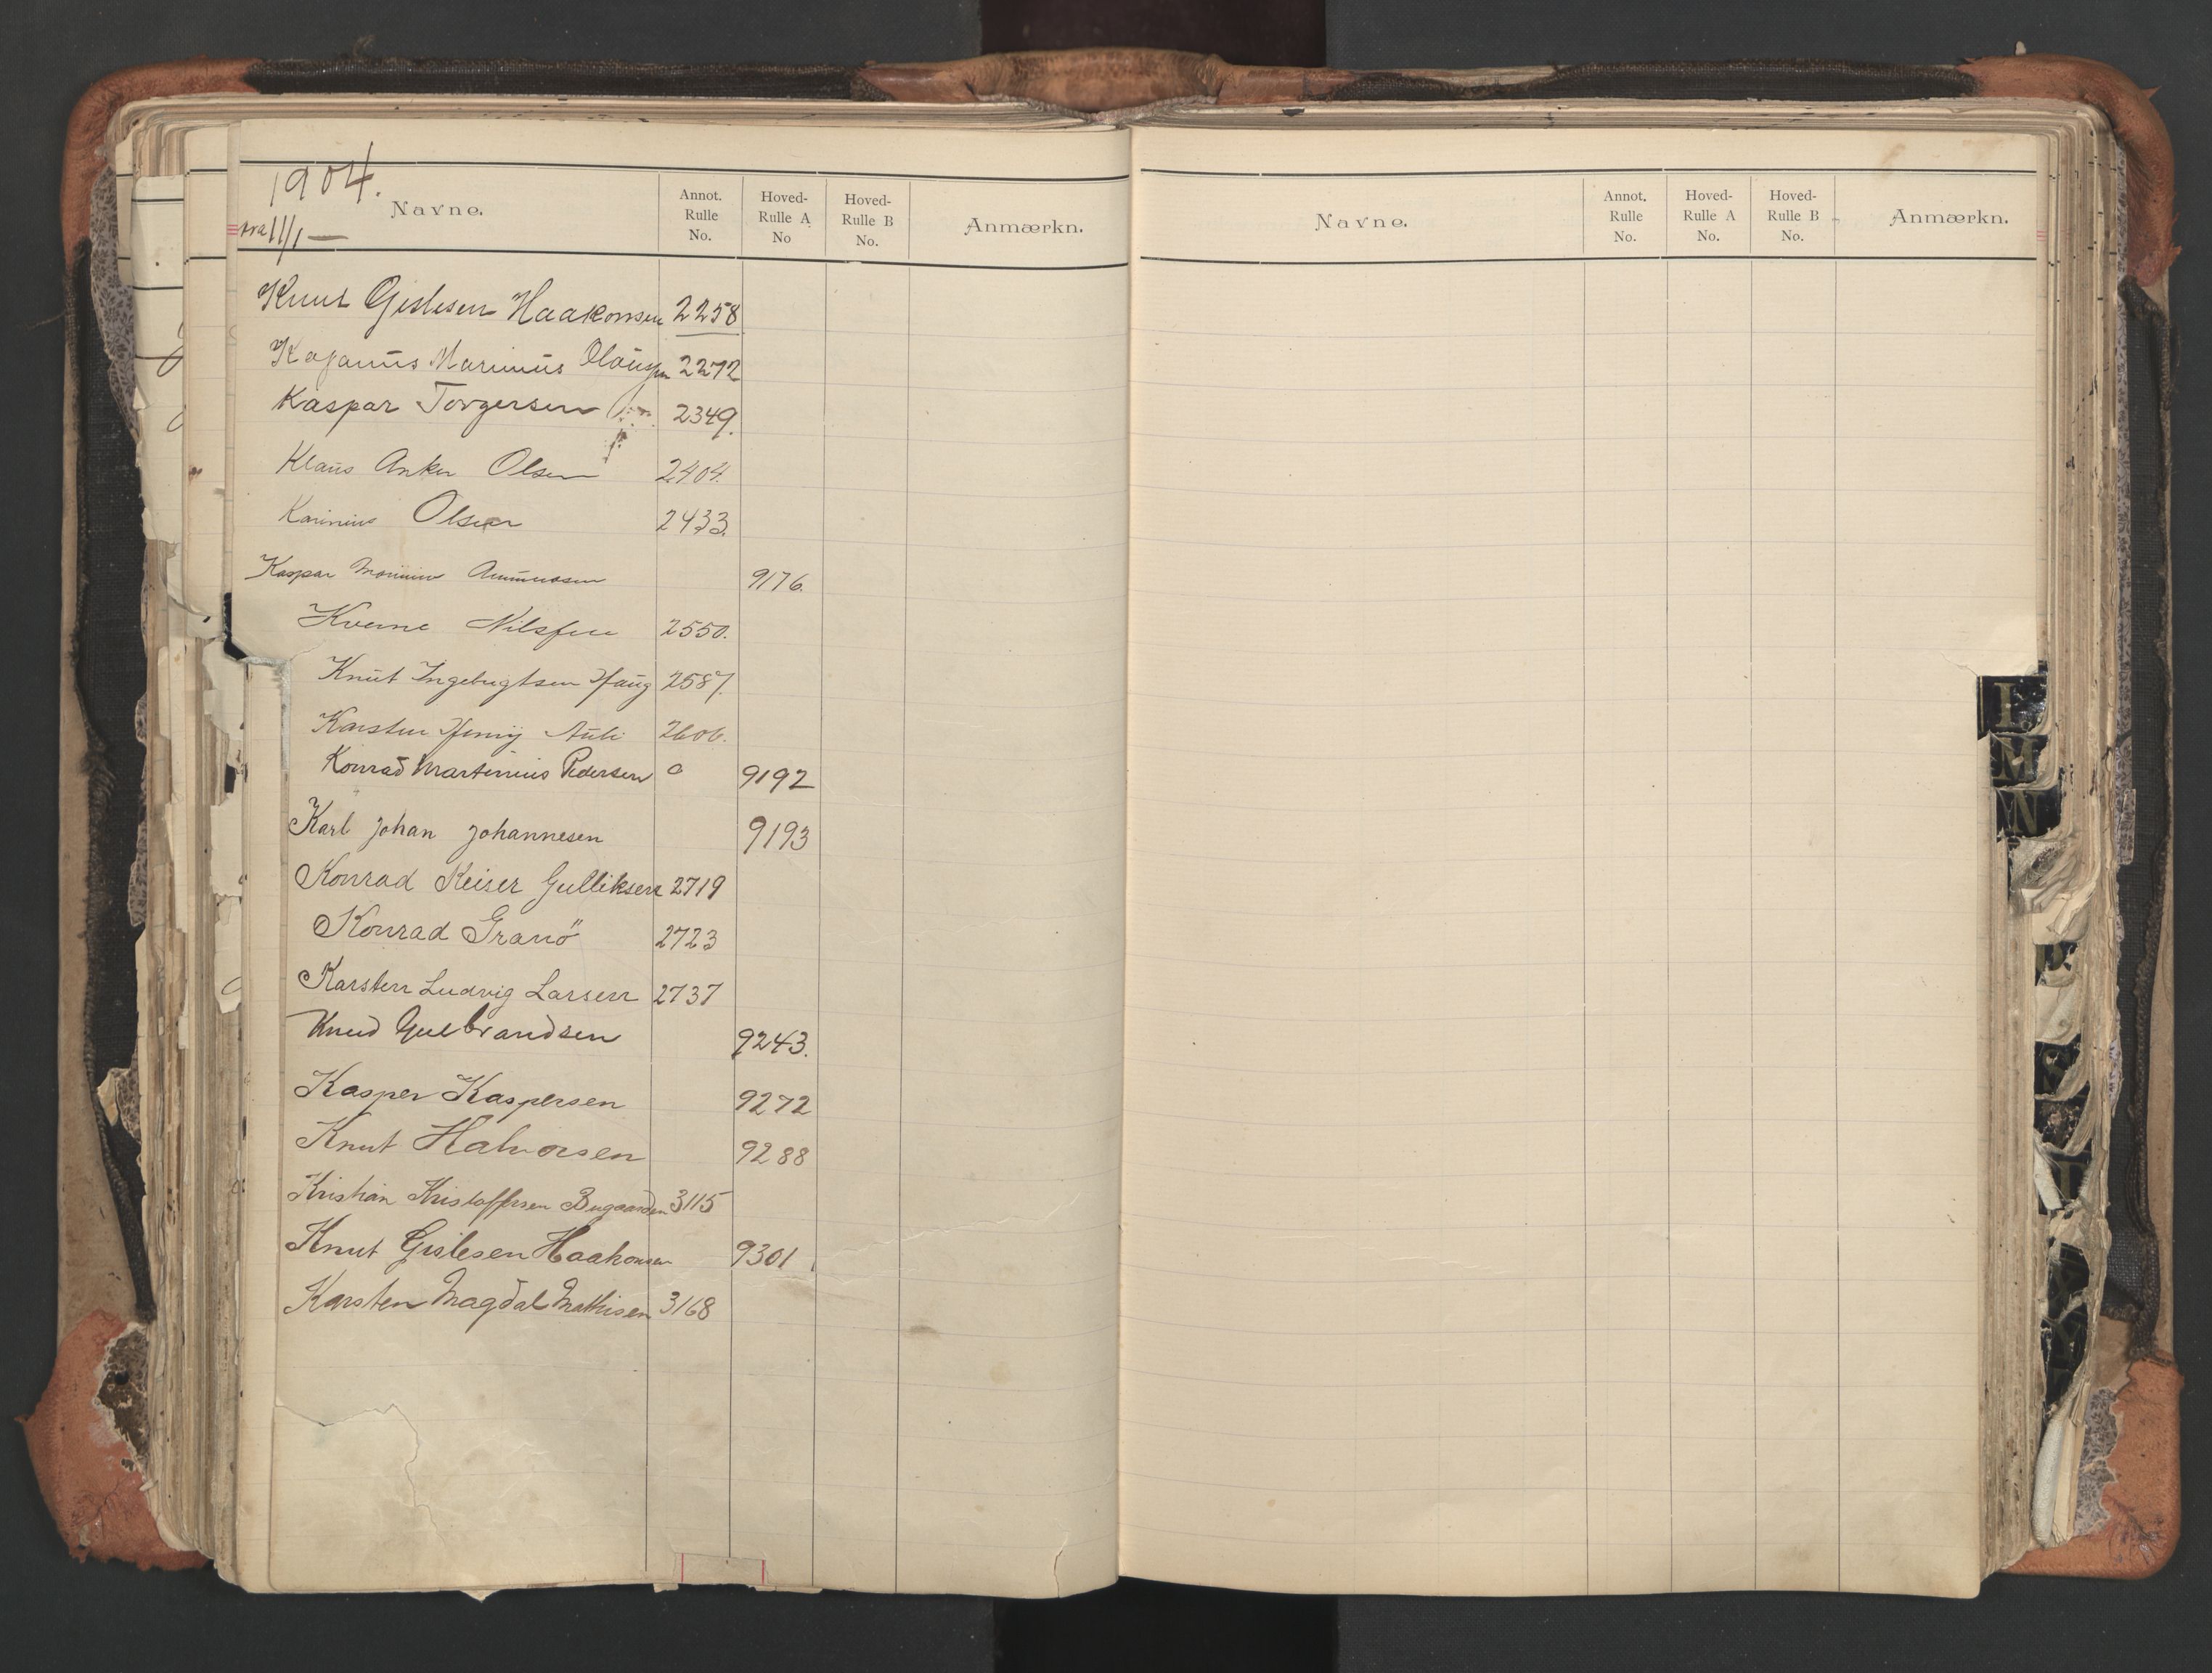 1904.
fra 11/1 —
Navne. Annot. Rulle No. Hoved-Rulle A No Hoved-Rulle B No. Anmærkn.
Knut Gislesen Haakonsen 2258
Marinius Olaussen 2272
Kaspar Torgersen 2349.
Klaus Anker Olsen 2404.
Karinius Olsen 2433.
Kaspar Asmussen 9176.
Nilssen 2550.
Knut Ingebrigtsen Haug 2587.
Karsten Henry Auli 2606.
Konrad Martinius Pedersen 0 9192
Karl Johan Johannesen 9193
Konrad Keiser Gulliksen 2719
Konrad Granö 2723
Karsten Ludvig Larsen 2737
Knud Gulbrandsen 9243.
Kasper Kaspersen 9272
Knut Halvorsen 9288
Kristian Kristoffersen Bugaarden 3115
Knut Gislesen Haakonsen 9301
Karsten Magdal Mathisen 3168
Navne. Annot. Rulle No. Hoved-Rulle A No. Hoved-Rulle B No. Anmærkn.
I
M
N